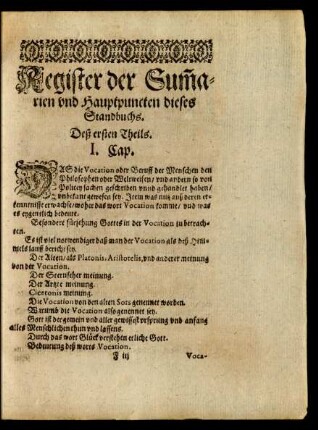 Register der Sum̃a-
rien vnd Hauptpuncten dieses
Standbuchs.
Deß ersten Theils.
I. Cap.
DAS die Vocation oder Beruff der Menschen den
Philosophen oder Weltweisen/ vnd andern so von
Policey sachen geschrieben vnnd gehandlet haben/
vnbekant gewesen sey. Item was nutz auß deren er-
kenntnusse erwachse/ woher das wort Vocation komme/ vnd was
es eygentlich bedeute.
Besondere fürsehung Gottes in der Vocation zu betrach-
ten.
Es ist viel notwendiger daß man der Vocation als deß Him-
mels lauff bericht sey.
Der Alten/ als Platonis, Aristotelis, vnd anderer meinung
von der Vocation.
Der Sternseher meinung.
Der Artzte meinung.
Ciceronis meinung.
Die Vocation von den alten Sors genennet worden.
Warumb die Vocation also genennet sey.
Gott ist der gemein vnd aller gewissest vrsprung vnd anfang
alles Menschlichen thun vnd lassens.
Durch das wort Glück verstehen etliche Gott.
Bedeutung deß worts Vocation.
Voca-